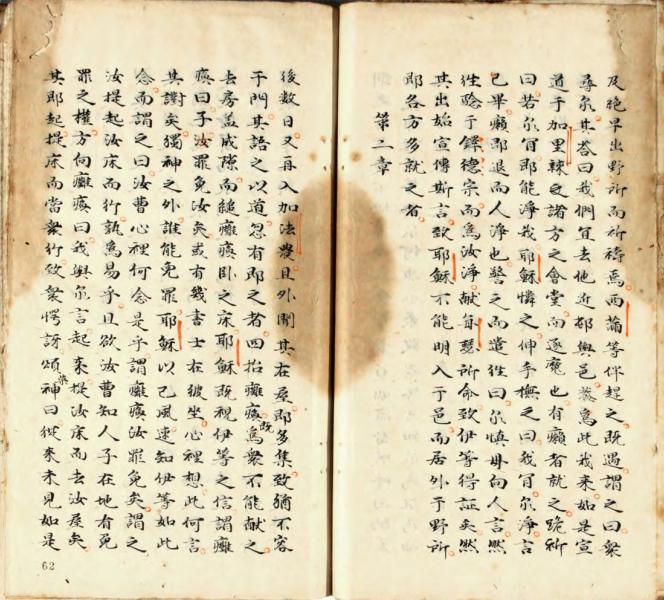 及絕早出野所而祈禱焉西蒲等伴趕之既遇謂之曰衆
尋尔其荅曰我們宜去他近邨與邑蓋為此我來如是宣
道于加里辣之諸方之會堂而逐魔也有癩者就之跪祈
曰若尔肯即能淨我耶穌憐之伸手撫之曰我肯尔淨言
已畢癩即退而人淨也警之而遣徃曰尔慎毋向人言然
徃驗于鐸德宗而為汝淨献每瑟所命致伊等得証矣然
其出始宣傳斯言致耶穌不能明入于邑而居外于野所
即各方多就之者
第二章
後數日又再入加法農且外聞其在屋即多集致猶不容
于門其語之以道忽有即之者四抬癱瘓為衆既不能献之
去房盖成隙而縋癱瘓卧之床耶穌既視伊等之信謂癱
瘓曰子汝罪免汝矣或有幾書士在彼坐心裡想此何言
其讟矣獨神之外誰能免罪耶穌以己風速知伊等如此
念而謂之曰汝曹心裡何念是乎謂癱瘓汝罪免矣謂之
汝提起汝床而行孰為易乎且欲汝曹知人子在地有免
罪之權方向癱瘓曰我與尔言起來提汝床而去汝屋矣
其即起提床而當衆行致衆愕訝頌榮神曰從來未見如是
62